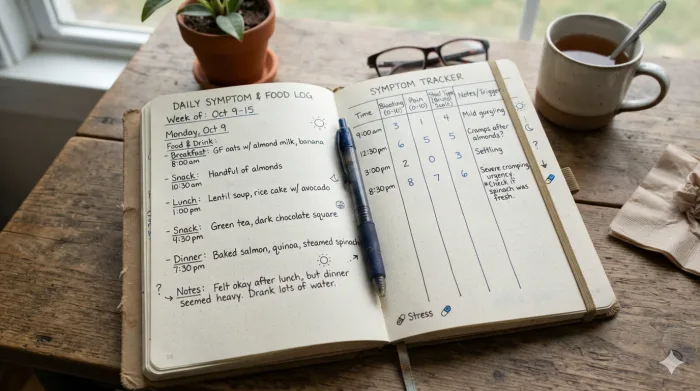 DAILY SYMPTOM & FOOD LOG
Week of: Oct 9-15
Monday, Oct 9
Food & Drink:
- Breakfast: GF oats w/ almond milk, banana
8:00am
- Snack: Handful of almonds
10:30am
- Lunch: Lentil soup, rice cake w/ avocado
1:00pm
- Snack: Green tea, dark chocolate square
4:30pm
- Dinner: Baked salmon, quinoa, steamed spinach
7:30pm
?
→ Notes: Felt okay after lunch, but dinner
seemed heavy. Drank lots of water.
SYMPTOM TRACKER
Time Bloating (0-10) Pain (0-10) Notes/Trigger
9:00am 3 1 4 Mild gurgling
12:30pm 6 5 5 Cramps after almonds?
3:00pm 2 0 3 Settling
8:30pm 8 7 6 Severe cramping, urgency.
*Check if
spinach was
fresh.
?
Stress